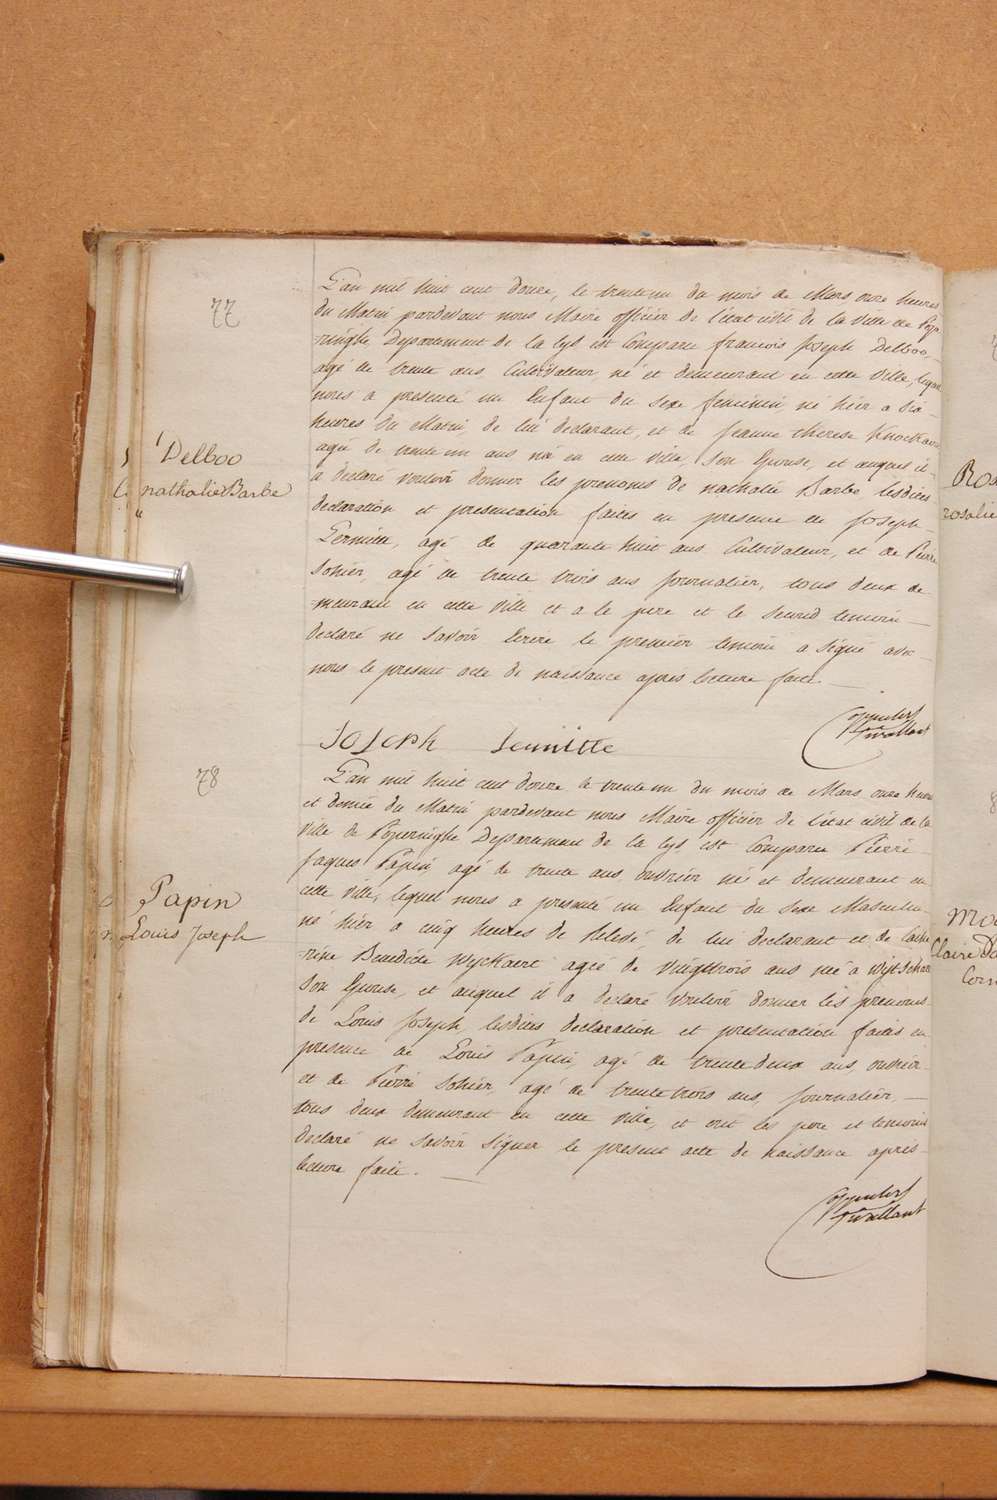 77
L'an mil huit cent douze, le trente un du mois de Mars, onze heures
du Matin pardevant nous Maire officier de l'état civil de la Ville de Pope
ringhe Departement de la Lys est Comparu francois Joseph Delboo,
agé de trente ans Cultivateur, né et demeurant en cette Ville, lequel
nous a presenté un Enfant du sexe feminin, né hier a six
heures du Matin, de lui declarant, et de Jeanne therese Knockaert
agée de trente un ans née en cette ville, Son Epouse, et auquel il
a declaré vouloir donner les prenoms de nathalie Barbe lesdites
declaration et presentation faites en presence de Joseph
agé de quarante huit ans Cultivateur, et de Pierre
Sohier, agé de trente trois ans Journalier, tous deux de
meurant en cette Ville et a le pere et le second temoin
declaré ne savoir Ecrire le premier temoin a signé avec
nous le present acte de naissance après lecture faite.
Delboo
nathalie Barbe
Joseph
78
L'an mil huit cent douze le trente un du mois de Mars onze heures
et demie du Matin pardevant nous Maire officier de l'état civil de la
Ville de Poperinghe Departement de la Lys est Comparu Pierre
Jaques Papin, agé de trente ans, ouvrier né et demeurant en
cette Ville, lequel nous a presenté un Enfant du Sexe Masculin
né hier a cinq heures de Relevé, de lui declarant et de Cathe
rine Benedicte Wyckaert agée de Vingttrois ans née a Wijtschate
Son Epouse, et auquel il a declaré vouloir donner les prenoms
de Louis Joseph, lesdites declaration et presentation faites en
presence de Louis Papin, agé de trente deux ans, ouvrier
et de Pierre Sohier, agé de trente trois ans, Journalier,
tous deux demeurant en cette Ville, et ont les pere et temoins
declaré ne savoir Signer le present acte de naissance après
lecture faite.
Papin
Louis Joseph